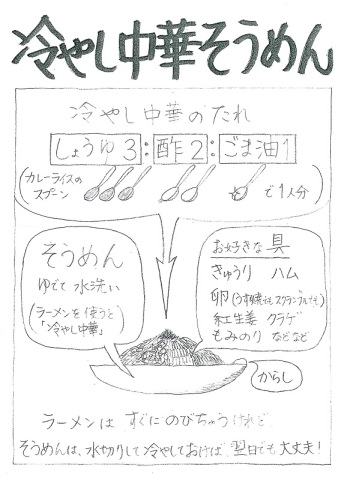 冷やし中華そうめん
冷やし中華のたれ
しょうゆ3:酢2:ごま油1
(カレーライスの
スプーン
で1人分)
そうめん
ゆでて 水洗い
(ラーメンを使うと
「冷やし中華」)
お好きな 具
きゅうり ハム
卵(うす焼でもスクランブルでも)
紅生姜 クラゲ
もみのり などなど
からし
ラーメンは すぐにのびちゃうけれど
そうめんは、水切りして冷やしておけば 翌日でも大丈夫!